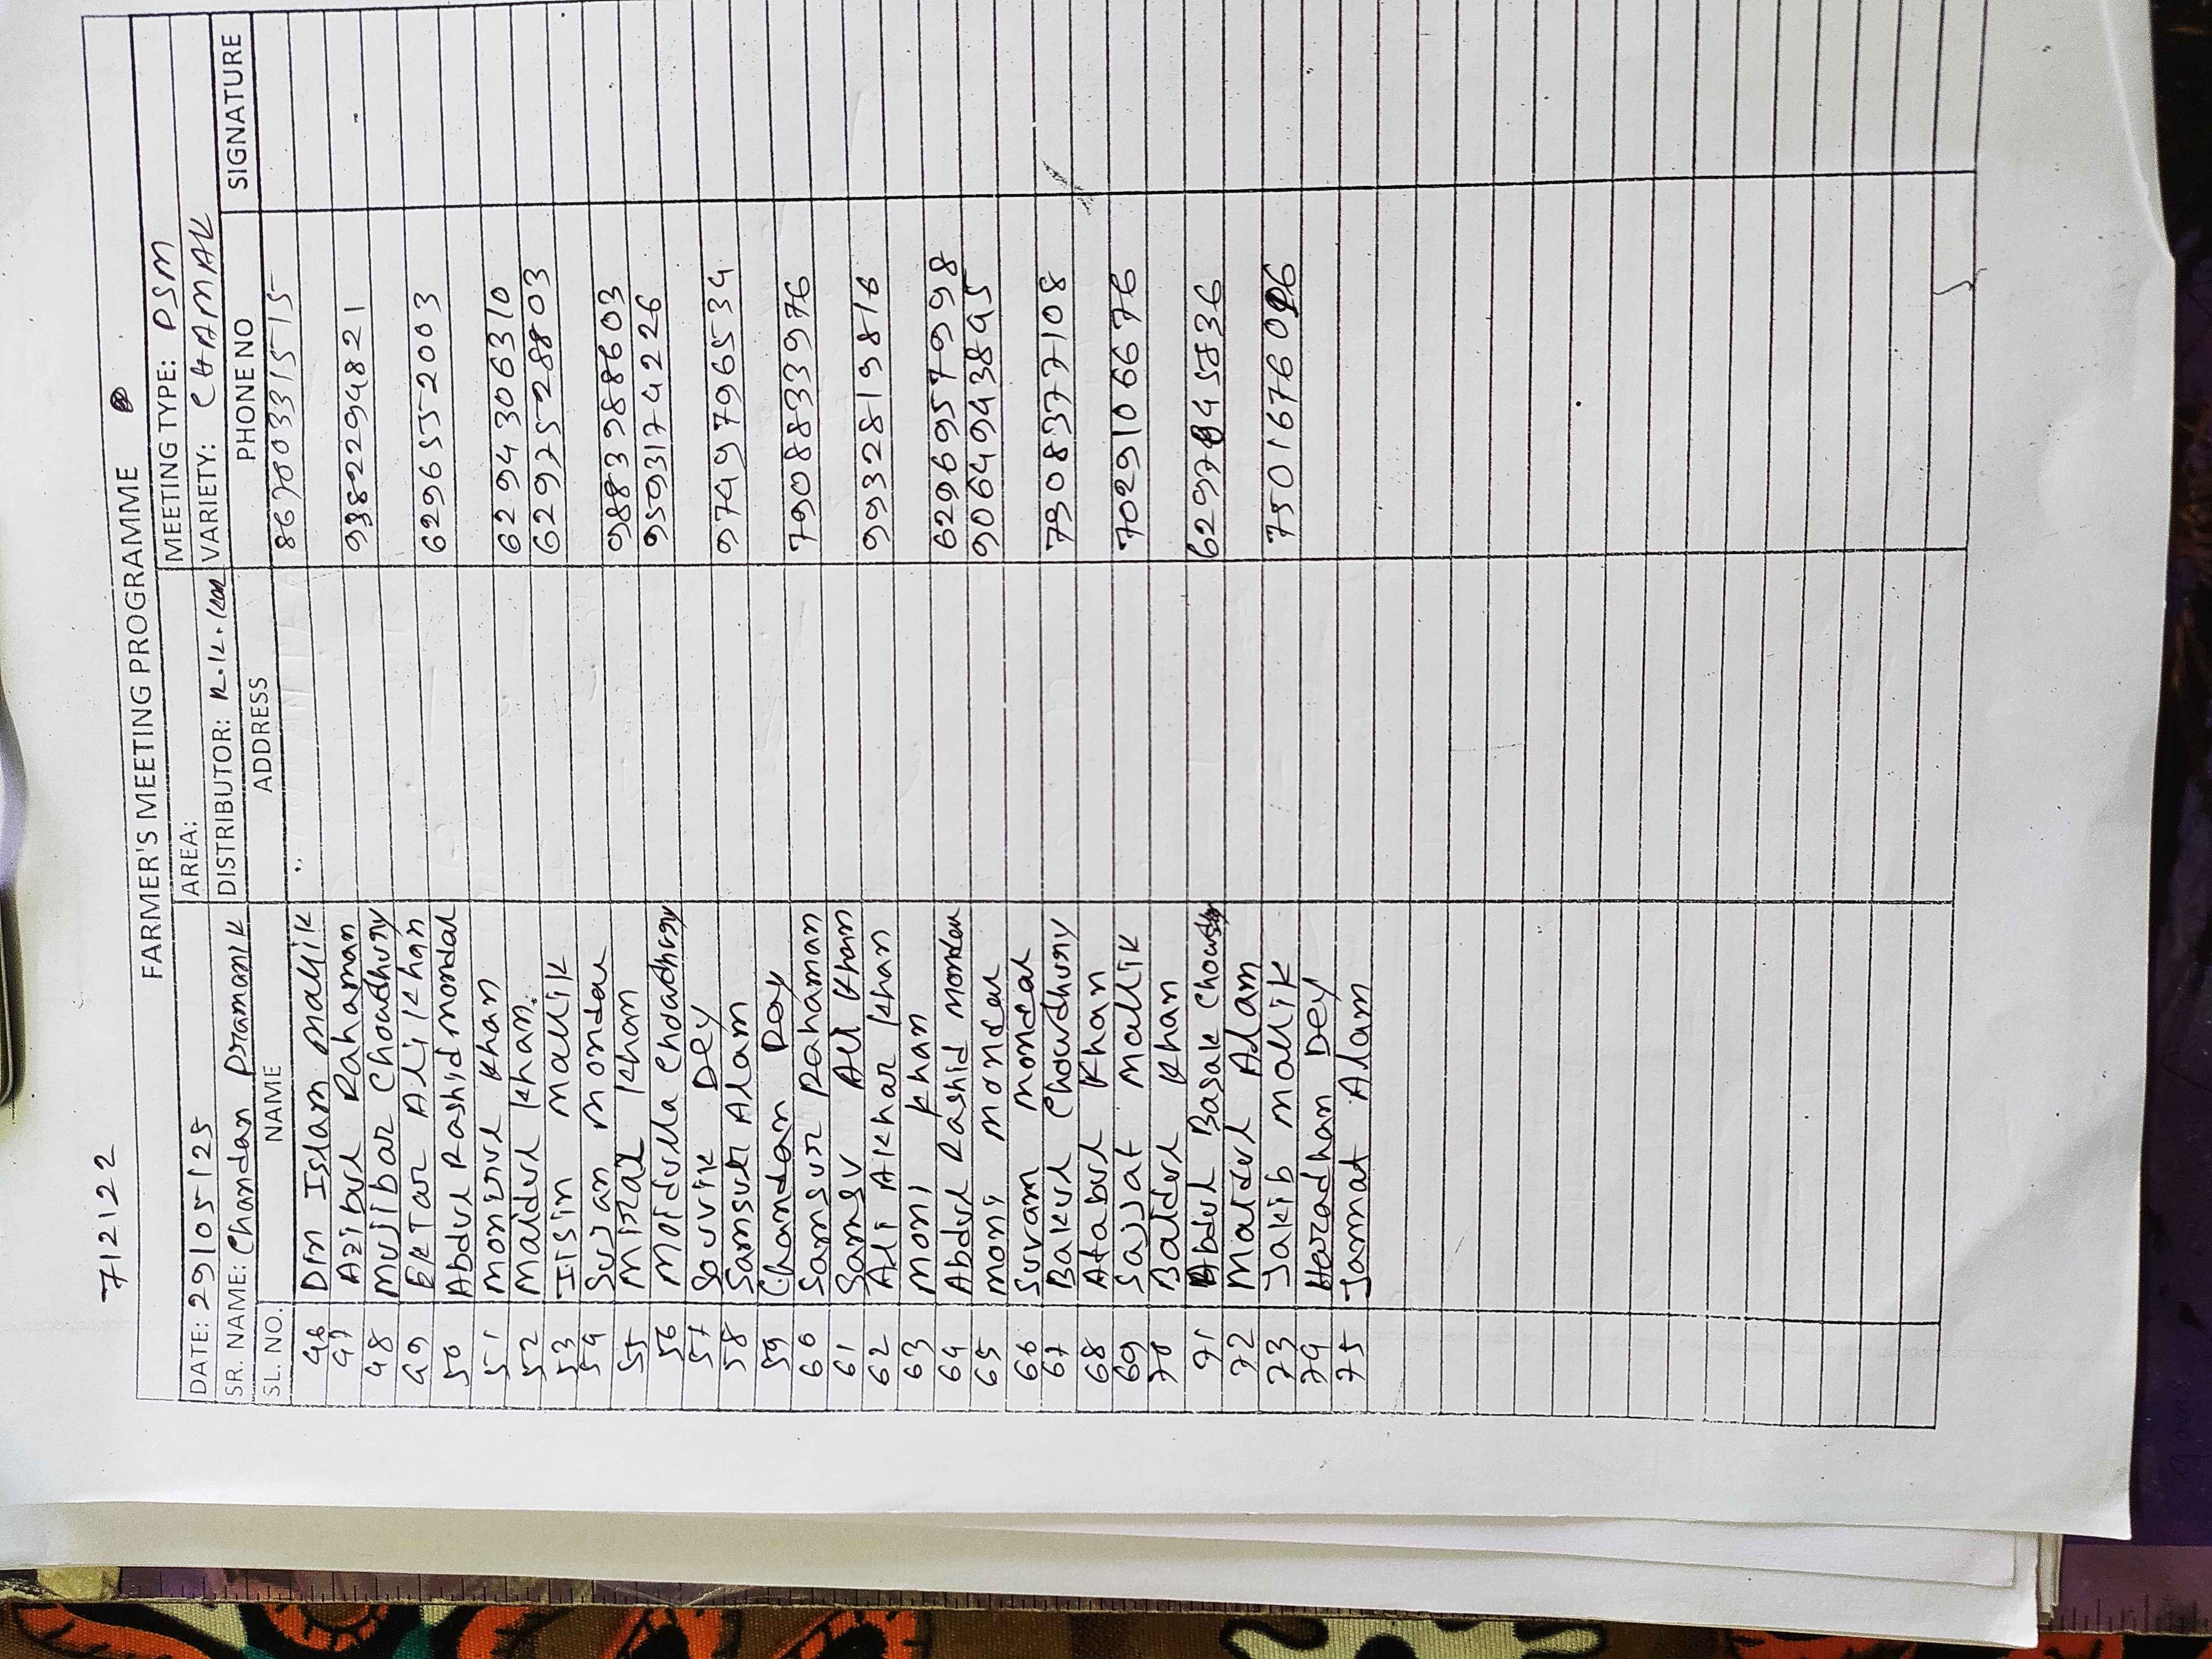 712122
FARMER'S MEETING PROGRAMME
AREA: MEETING TYPE: PSM
DATE: 29/05/25 DISTRIBUTOR: R.K. Kar VARIETY: CHAMAK
SR. NAME: Chandan Pramanik
SL. NO. NAME ADDRESS PHONE NO SIGNATURE
46 Din Islam Mallik 86700331515
47 Azibul Rahaman
48 Mujibar Choudhury 9382294821
49 EKTar Ali Khan
50 Abdul Rashid mondal 6296552003
51 Monirul Khan
52 Maidul Khan. 6294306310
53 Iisin Mallik 6297528803
54 Sujan Mondal
55 Mizal Khan 9883988603
56 Moidulla Choadhury 9593174226
57 Souvik Dey
58 Samsul Alam 9749796534
59 Chandan Dey
60 Samsur Rahaman 7908833976
61 Samsu Ali Khan
62 Ali Akhar Khan 9932819816
63 Moni Khan
64 Abdul Rashid Mondal 6296957998
65 Moni Mondal 9064943895
66 Suram Mondal
67 Bakul Chowdhury 7908377108
68 Atabul Khan
69 Sajjat Mallik 7029106676
70 Baidul Khan
71 Abdul Basak Chowdhury 6297845836
72 Maidul Alam
73 Jakib Mallik 7501676026
74 Haradhan Dey
75 Jannat Alam